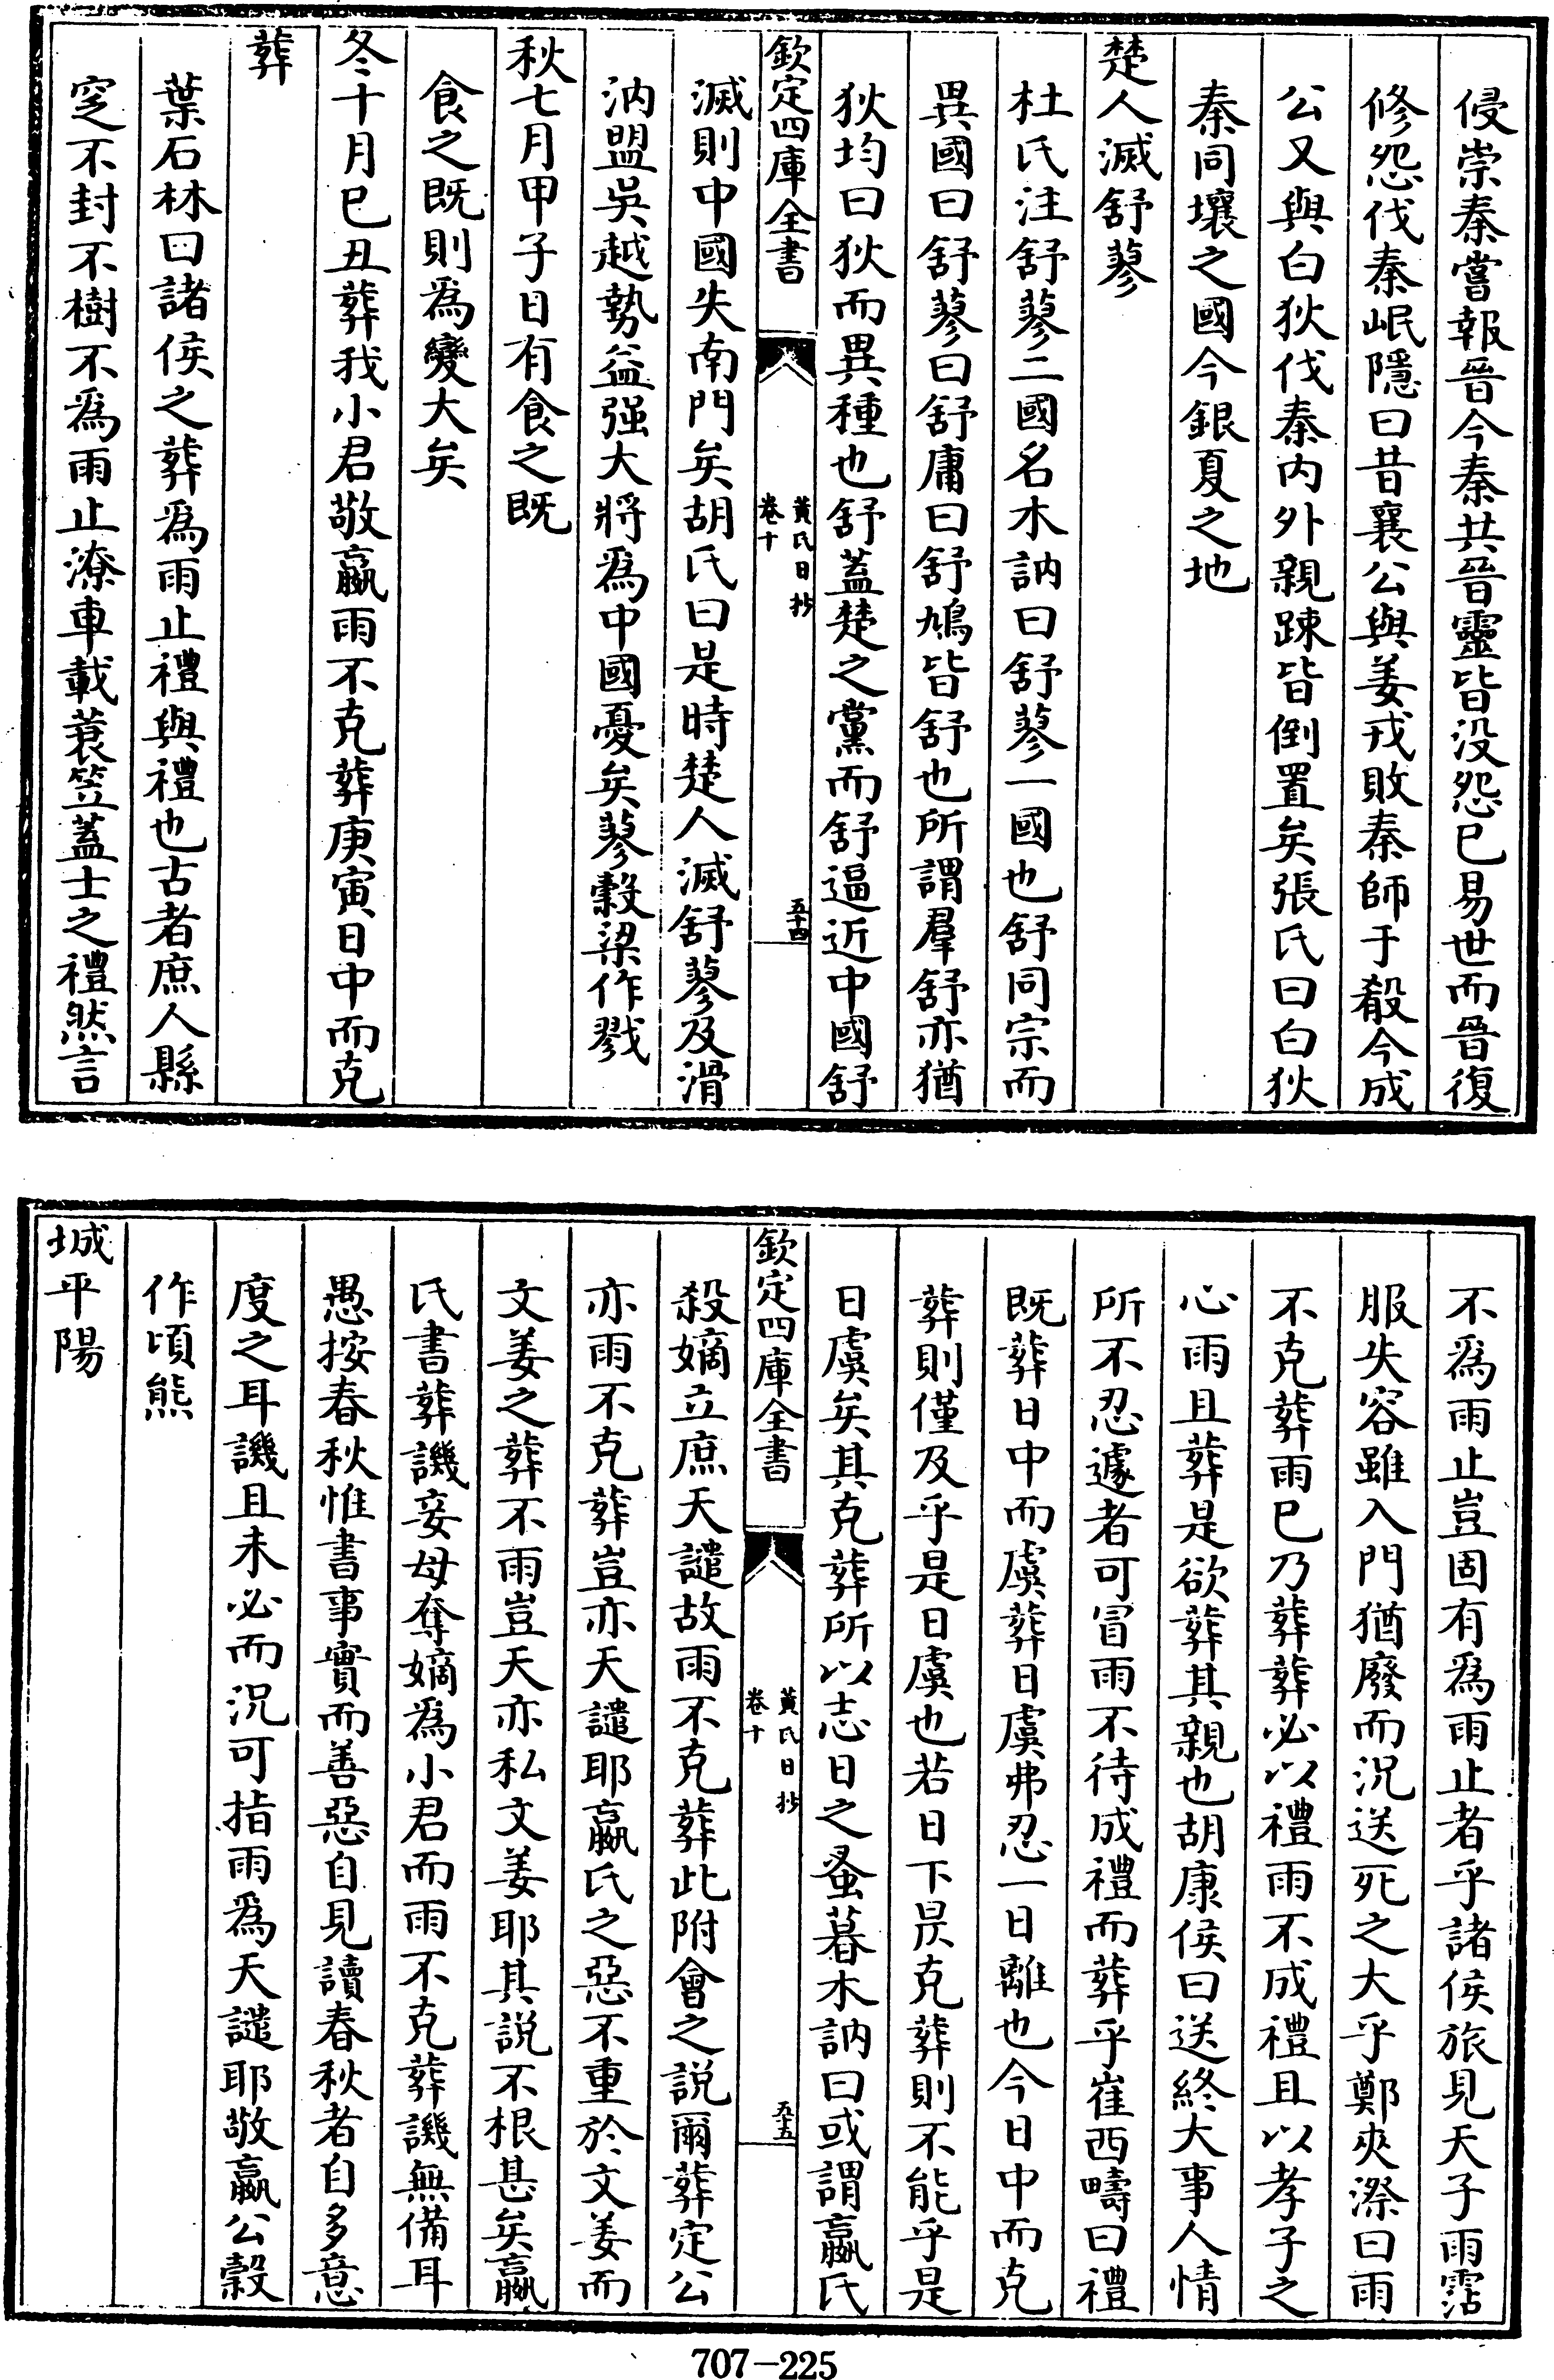 侵崇秦嘗報晉今秦共晉靈皆没怨已易世而晉復
修怨伐秦岷隱曰昔襄公與姜戎敗秦師于殽今成
公又與白狄伐秦内外親踈皆倒置矣張氏曰白狄
秦同壤之國今銀夏之地
楚人滅舒蓼
杜氏注舒蓼二國名木訥曰舒蓼一國也舒同宗而
異國曰舒蓼曰舒庸曰舒鳩皆舒也所謂羣舒亦猶
狄均曰狄而異種也舒蓋楚之黨而舒逼近中國舒
欽定四庫全書
黃氏日抄
卷十
五十四
滅則中國失南門矣胡氏曰是時楚人滅舒蓼及滑
汭盟吳越勢益强大將為中國憂矣蓼穀梁作戮
秋七月甲子日有食之既
食之既則為變大矣
冬十月已丑葬我小君敬嬴雨不克葬庚寅日中而克
葬
葉石林曰諸侯之葬為雨止禮與禮也古者庶人縣
窆不封不樹不為雨止潦車載蓑笠蓋士之禮然言
不為雨止豈固有為雨止者乎諸侯旅見天子雨霑
服失容雖入門猶廢而况送死之大乎鄭夾漈曰雨
不克葬雨已乃葬葬必以禮雨不成禮且以孝子之
心雨且葬是欲葬其親也胡康侯曰送終大事人情
所不忍遽者可冒雨不待成禮而葬乎崔西疇曰禮
既葬日中而虞葬日虞弗忍一日離也今日中而克
葬則僅及乎是日虞也若日下昃克葬則不能乎是
日虞矣其克葬所以志日之蚤暮木訥曰或謂嬴氏
欽定四庫全書
黃氏日抄
卷十
五十五
殺嫡立庶天譴故雨不克葬此附會之説爾葬定公
亦雨不克葬豈亦天譴耶嬴氏之惡不重於文姜而
文姜之葬不雨豈天亦私文姜耶其説不根甚矣嬴
氏書葬譏妾母奪嫡為小君而雨不克葬譏無備耳
愚按春秋惟書事實而善惡自見讀春秋者自多意
度之耳譏且未必而況可指雨為天譴耶敬嬴公穀
作頃熊
城平陽
707-225